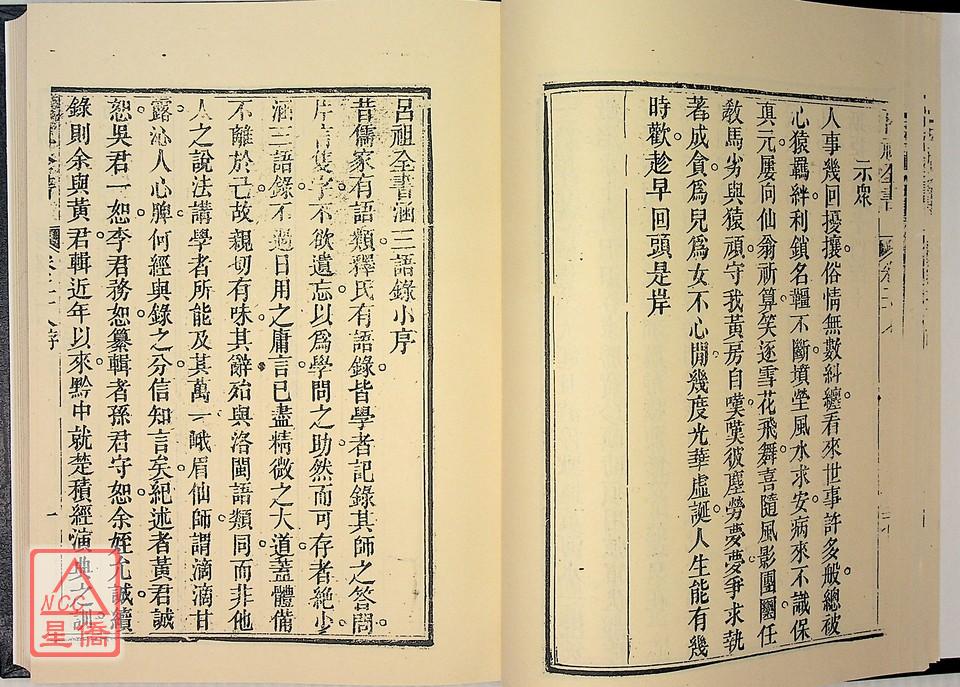 示眾
人事幾回擾攘俗情無數糾纏看來世事許多般總被
心猿羈絆利鎖名韁不斷墳塋風水求安病來不識保
真元屢向仙翁祈算笑逐雪花飛舞喜隨風影團團任
教馬劣與猿頑守我黃房自嘆嘆彼塵勞夢夢爭求執
著成貪爲兒爲女不心閒幾度光華虛誕人生能有幾
時歡趁早回頭是岸
呂祖全書涵三語錄小序
昔儒家有語類釋氏有語錄皆學者記錄其師之答問
片言隻字不欲遺忘以爲學問之助然而可存者絶少
涵三語錄不過日用之庸言已盡精微之大道葢體備
不離於己故親切有味其辭殆與洛閩語類同而非他
人之說法講學者所能及其萬一峨眉仙師謂滴滴甘
露沁人心脾何經與錄之分信知言矣紀述者黃君誠
恕吳君一恕李君務恕纂輯者孫君守恕余姪允誠續
錄則余與黃君輯近年以來黔中就楚積經演典之訓
一
NCC
星僑